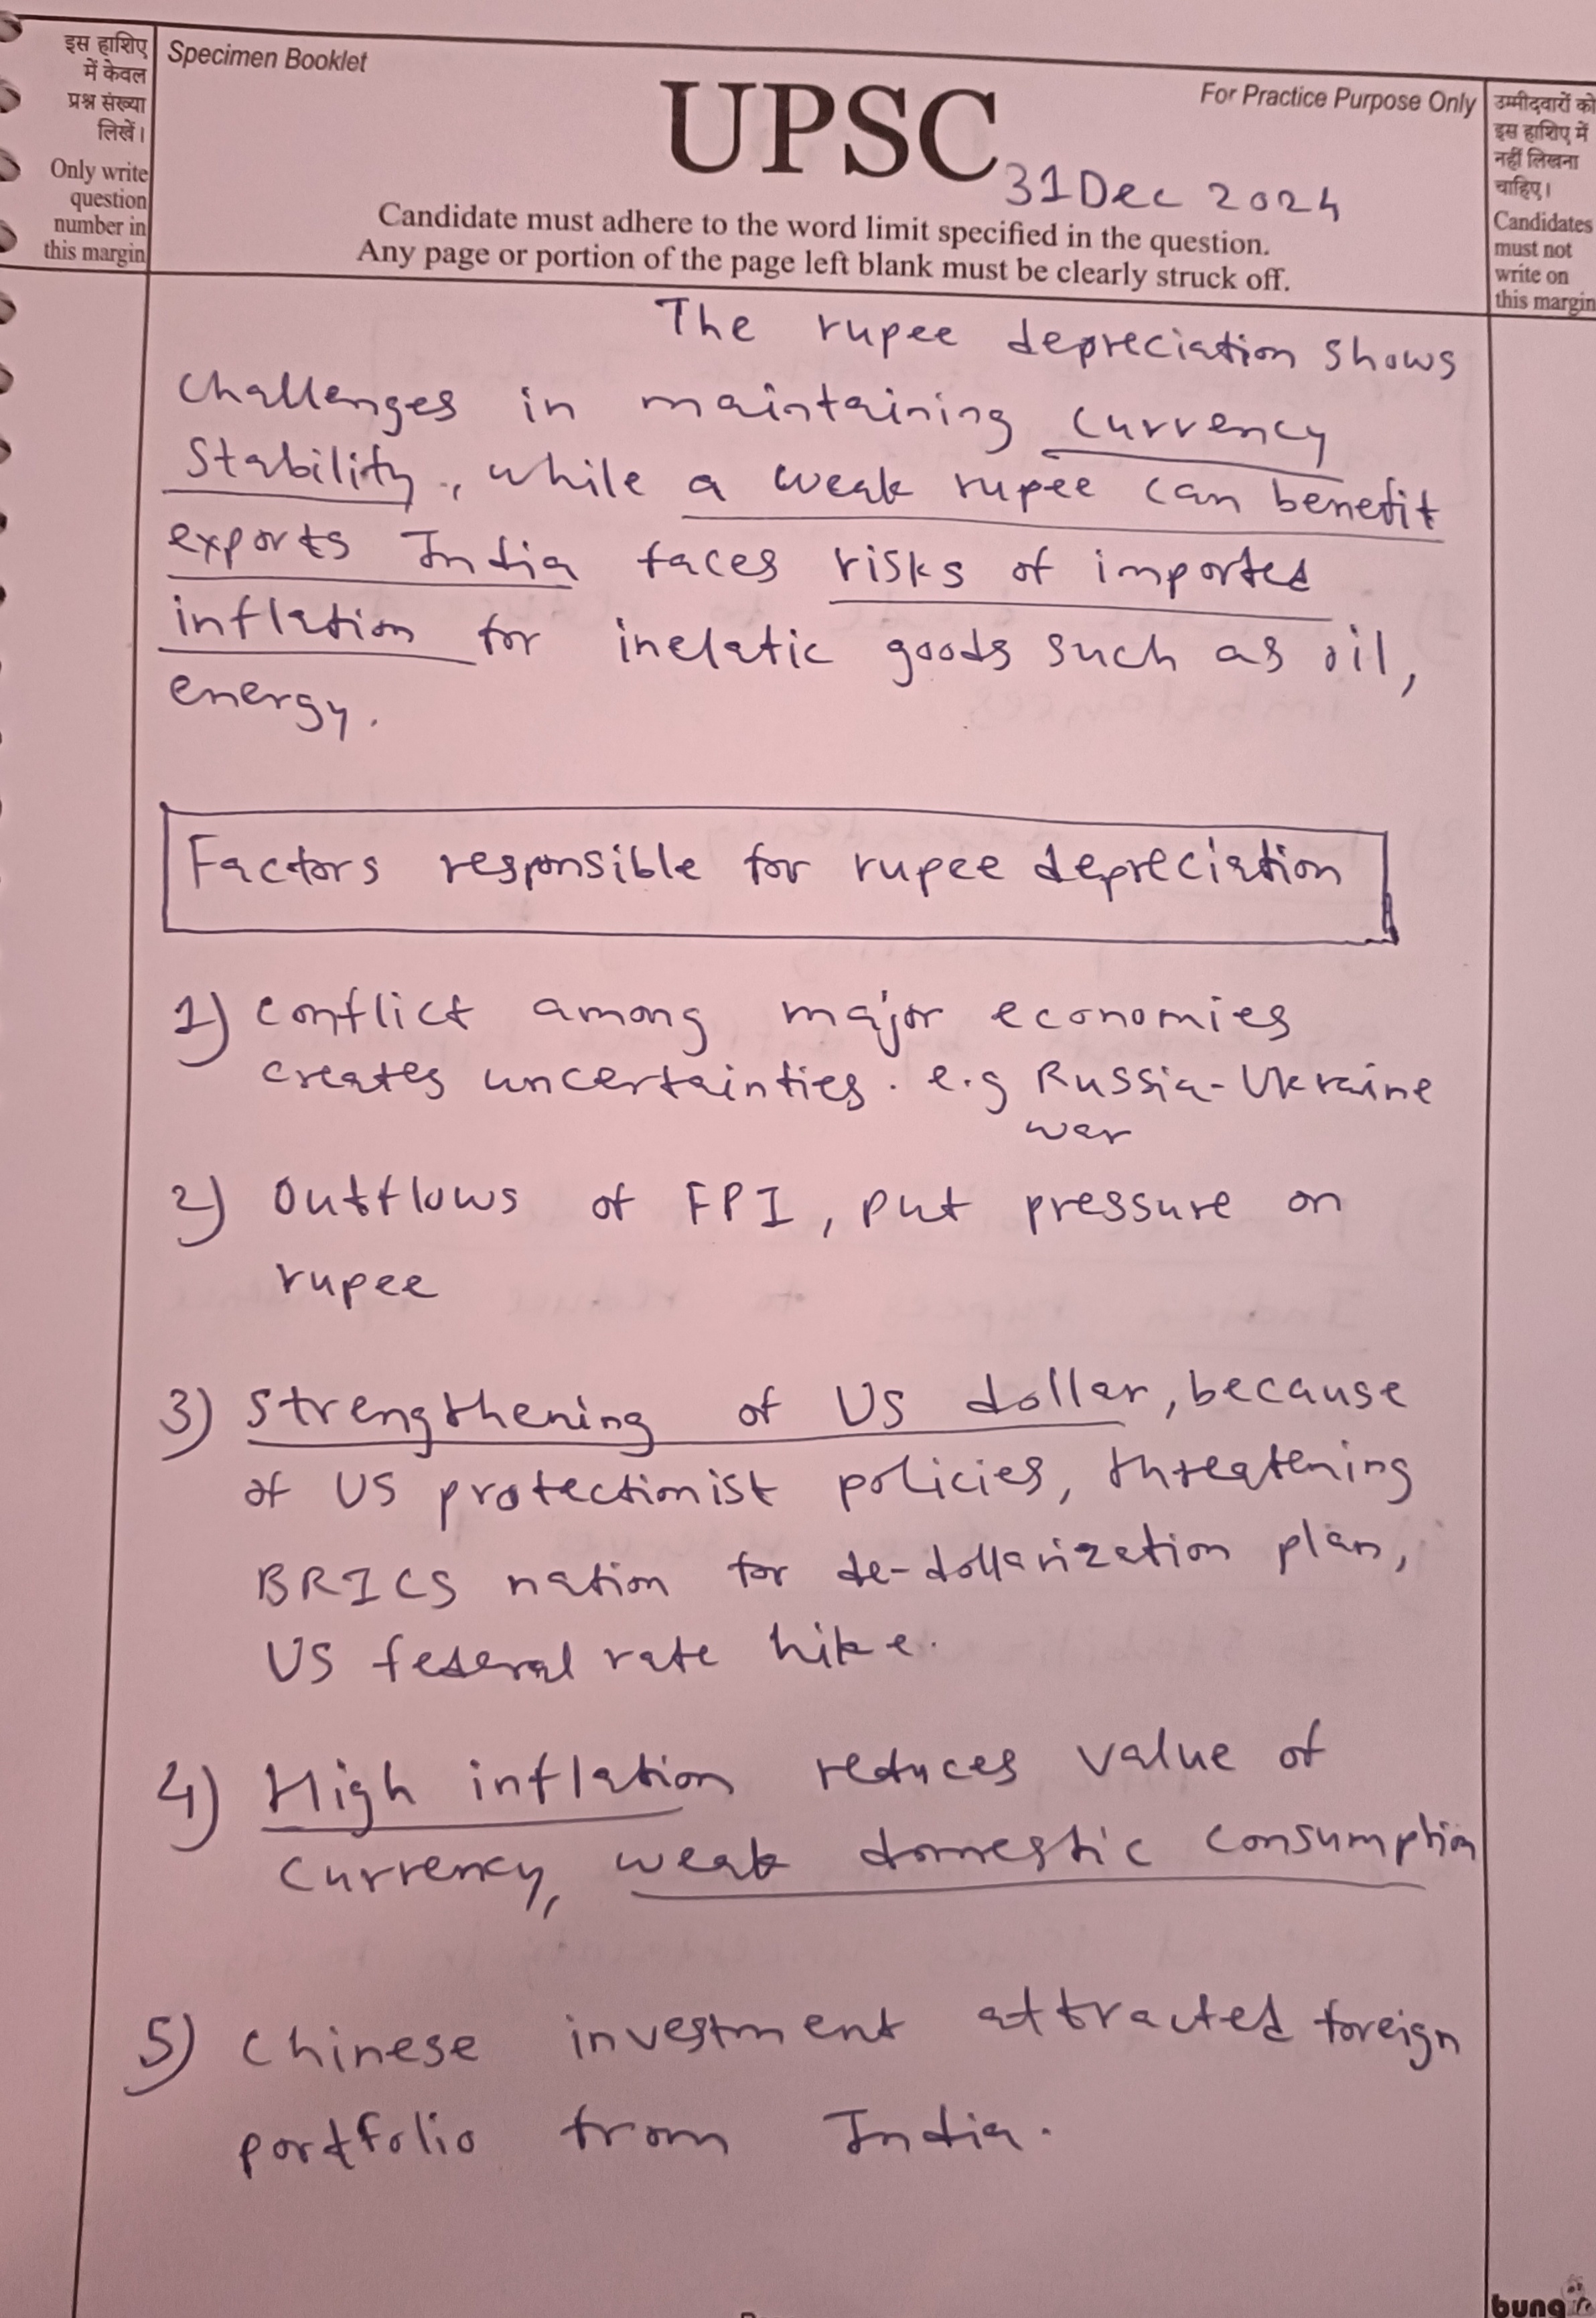 इस हाशिए
में केवल
प्रश्न संख्या
लिखें।
Only write
question
number in
this margin
Specimen Booklet
UPSC
For Practice Purpose Only
31 Dec 2024
Candidate must adhere to the word limit specified in the question.
Any page or portion of the page left blank must be clearly struck off.
उम्मीदवारों को
इस हाशिए में
नहीं लिखना
चाहिए।
Candidates
must not
write on
this margin
The rupee depreciation shows
challenges in maintaining currency
stability, while a weak rupee can benefit
exports India faces risks of imported
inflation for inelatic goods such as oil,
energy.
Factors responsible for rupee depreciation
1) Conflict among major economies
creates uncertainties. e.g Russia-Ukraine
war
2) Outflows of FPI, put pressure on
rupee
3) Strengthening of US dollar, because
of US protectionist policies, threatening
BRICS nation for de-dollarization plan,
US federal rate hike.
4) High inflation reduces value of
currency, weak domestic consumption
5) Chinese investment attracted foreign
portfolio from India.